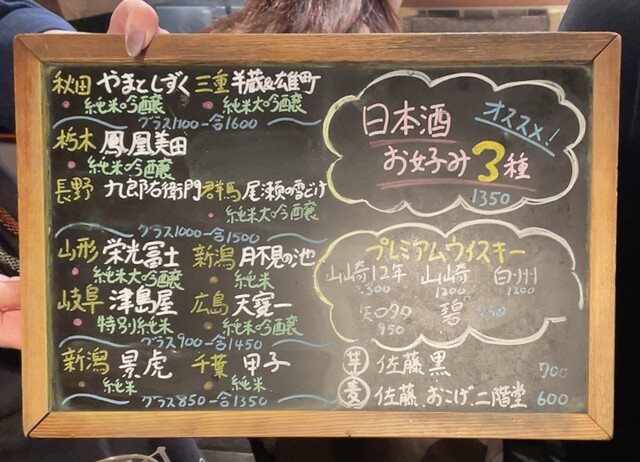 秋田 やまとしずく 三重 半蔵&雄町
純米吟醸 純米大吟醸
グラス1100 一合1600
栃木 鳳凰美田
純米吟醸
長野 九郎右衛門 群馬 尾瀬の雪どけ
純米大吟醸
グラス1000 一合1500
山形 栄光冨士 新潟 月不見の池
純米大吟醸 純米
岐阜 津島屋 広島 天寶一
特別純米 純米吟醸
グラス900 一合1450
新潟 景虎 千葉 甲子
純米 純米
グラス850 一合1350
日本酒 オススメ!
お好み3種
1350
プレミアムウイスキー
山崎12年 山崎 白州
1200 1200
知多 碧
950
芋 佐藤 黒 700
麦 佐藤、おこげ、二階堂 600